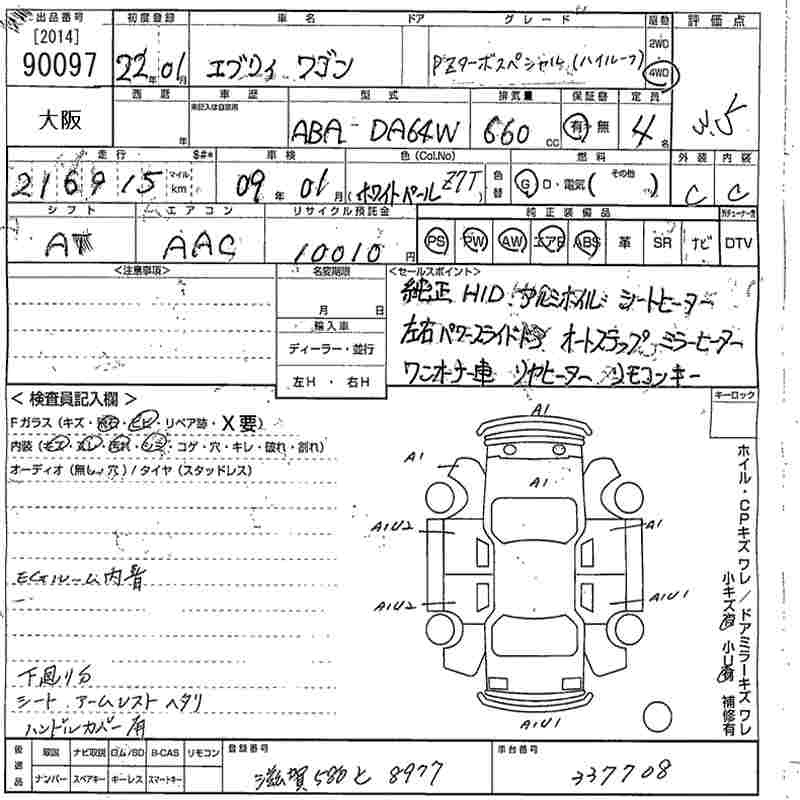 出品番号 初度登録 車名 ドア グレード 駆動 評価点
[2014]
90097 22年 01月 エブリィ ワゴン PZターボスペシャル (ハイルーフ) 2WD 4WD
大阪 西暦 年 車歴 型式 排気量 保証書 定員
未記入は自家用
ABA-DA64W 660cc 有・無 4名 3.5
走行 $#* 車検 色(Col.No) 燃料 外装 内装
216915 マイル km 09年 01月 (ホワイトパール Z7T) 色替 G D・電気( その他 ) C C
シフト エアコン リサイクル預託金 純正装備品
AT AAC 10010円 PS PW AW エアB ABS 革 SR ナビ DTV
<注意事項> 名変期限 <セールスポイント>
月 日
純正 HID アルミホイル シートヒーター
輸入車
左右パワースライドドア オートステップ ミラーヒーター
ディーラー・並行
ワンオーナー車 リヤヒーター リモコンキー
左H ・ 右H
キーロック
<検査員記入欄>
Fガラス(キズ・飛石・ヒビ・リペア跡・X要)
内装(キズ・スレ・汚れ・シミ・コゲ・穴・キレ・破れ・割れ)
オーディオ(無し・穴)/タイヤ(スタッドレス)
EGルーム内音
下廻りサ
シート アームレスト ヘタリ
ハンドルカバー有
A1
A1
A1
A1U2
A1
A1U2
A1U1
A1U1
ホイル・CPキズ ワレ/ドアミラーキズ ワレ
小キズ有 小U有 補修有
後送品 取説 ナビ取説 ロム/SD B-CAS リモコン 登録番号 車台番号
ナンバー スペアキー キーレス スマートキー
滋賀 580 と 8977 337708